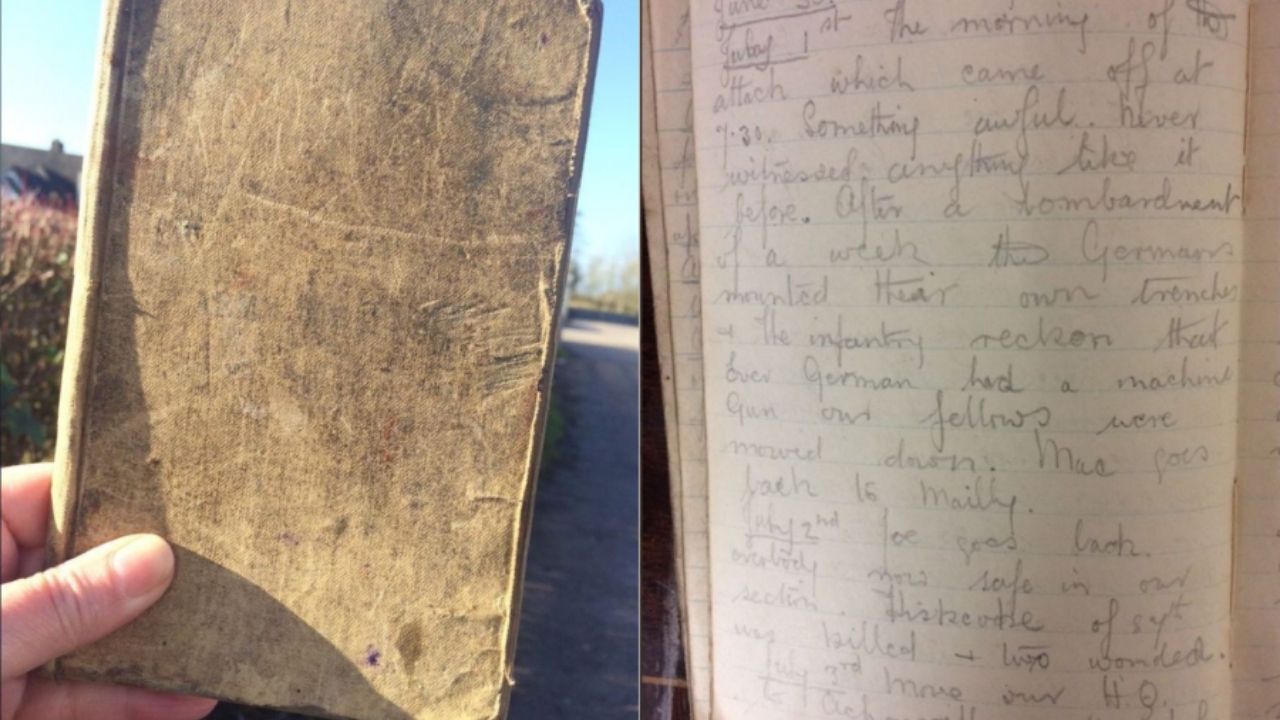 June 30.
July 1st The morning of the
attack which came off at
7.30. Something awful. Never
witnessed anything like it
before. After a bombardment
of a week the Germans
mounted their own trenches
+ the infantry reckon that
Ever German had a machine
Gun our fellows were
mowed down. Mac goes
back to Mailly.
July 2nd Joe goes back.
everbody now safe in our
section. of Syt
was killed + two wonded.
July 3rd Move our H.Q.
to